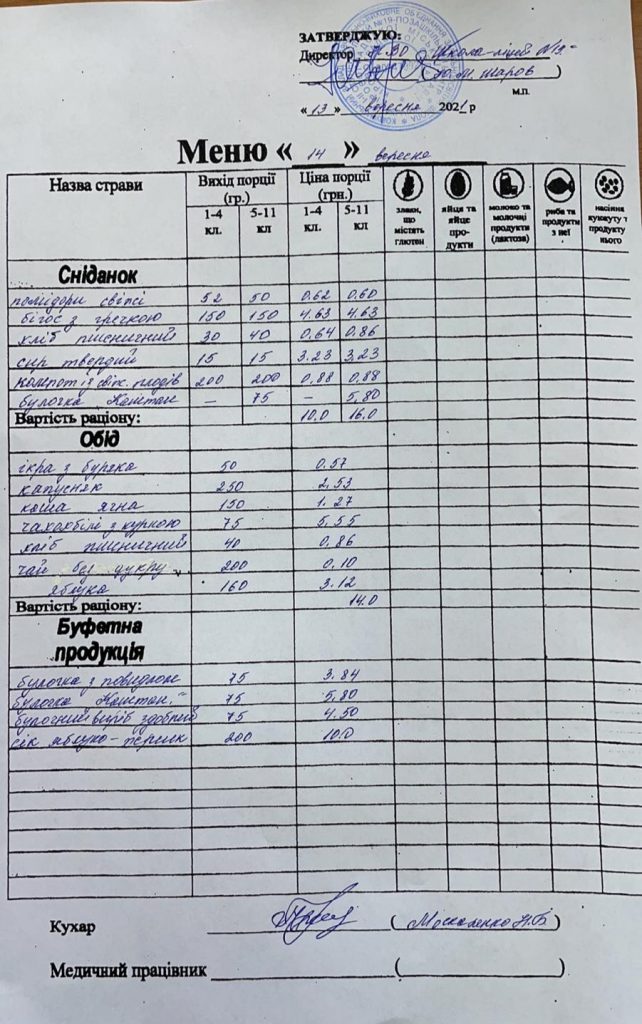 ЗАТВЕРДЖУЮ:
Директор НВО Школа-ліцей №19
(Ю.М. Шаров)
м.п.
« 13 » вересня 2021 р
Меню « 14 » вересня
Назва страви Вихід порції (гр.) Ціна порції (грн.) злаки, що містять глютен яйця та яйце продукти молоко та молочні продукти (лактоза) риба та продукти з неї насіння кунжуту т продукту нього
1-4 кл. 5-11 кл 1-4 кл. 5-11 кл
Сніданок
помідори свіжі 52 50 0.62 0.60
бігос з гречкою 150 150 4.63 4.63
хліб пшеничний 30 40 0.64 0.86
сир твердий 15 15 3.23 3.23
компот із свіж. плодів 200 200 0,88 0,88
булочка Каштан – 75 – 5,80
Вартість раціону: 10.0 16.0
Обід
ікра з буряка 50 0.57
капусняк 250 2,53
каша ячна 150 1.27
чахохбілі з куркою 75 5,55
хліб пшеничний 40 0,86
чай без цукру 200 0,10
яблука 160 3.12
Вартість раціону: 14.0
Буфетна
продукція
булочка з повидлом 75 3.84
булочка Каштан" 75 5,80
булочний виріб здобний 75 4.50
сік яблуко-персик 200 10.0
Кухар (Москаленко Н.Б)
Медичний працівник ( )